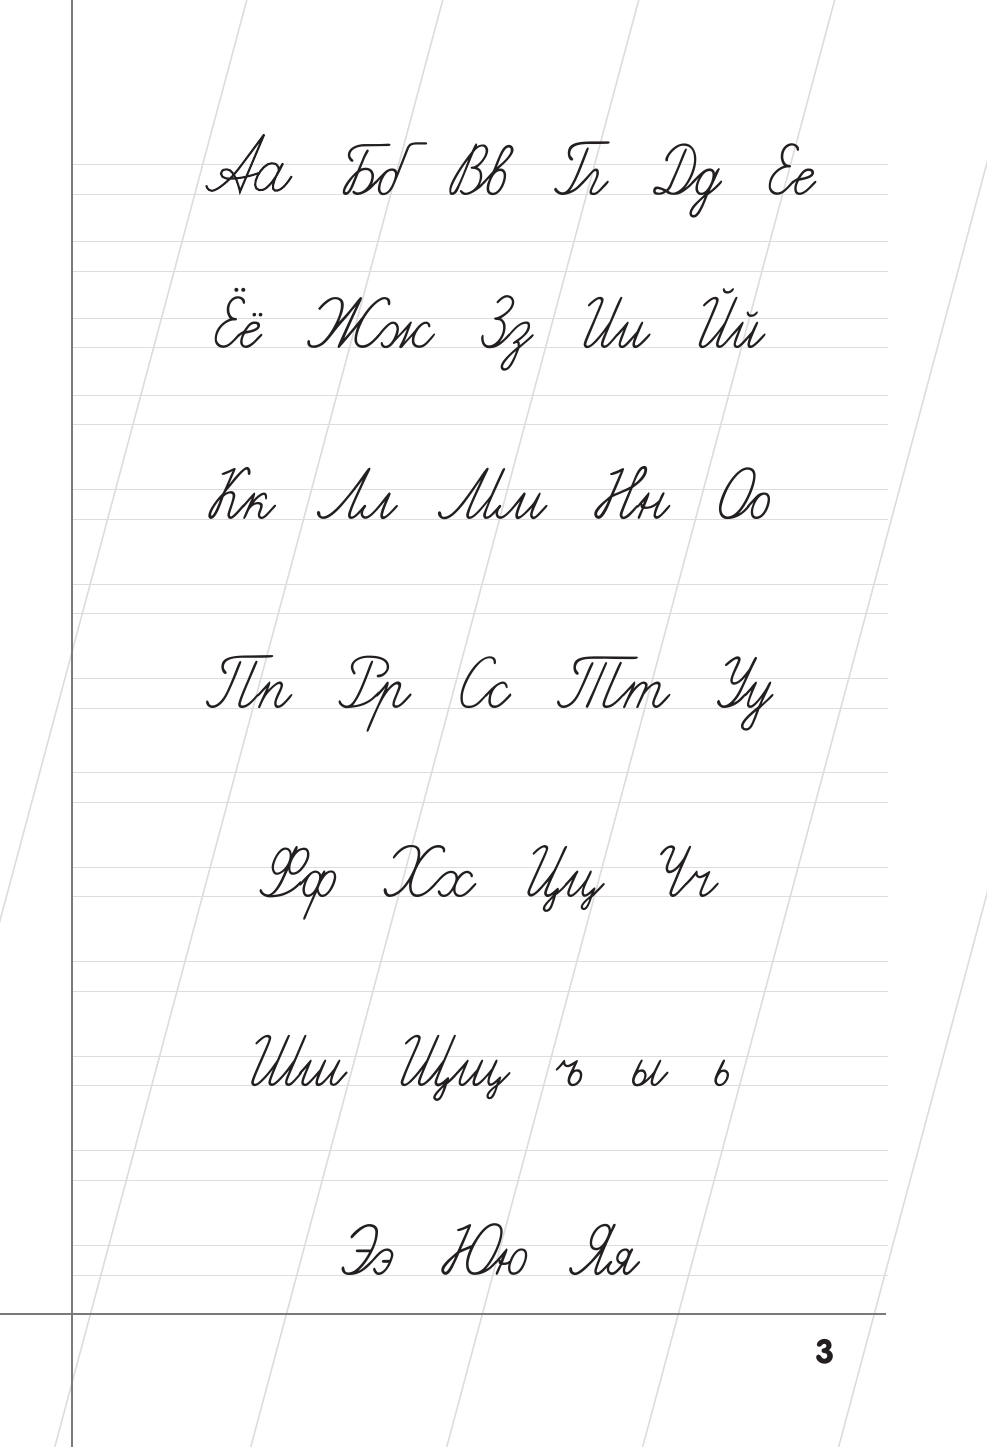 Аа Бб Вв Гг Дд Ее
Ёё Жж Зз Ии Йй
Кк Лл Мм Нн Оо
Пп Рр Сс Тт Уу
Фф Хх Цц Чч
Шш Щщ ъ ы ь
Ээ Юю Яя
3